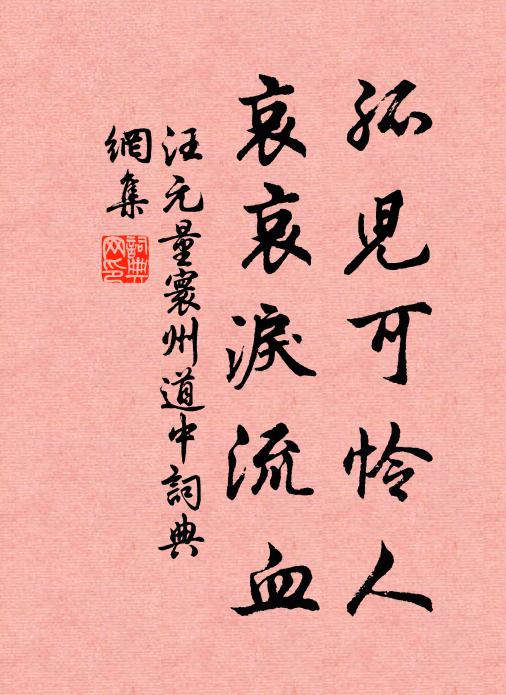 孤兒可怜人
哀哀淚流血
汪元量寰州道中詞典
網集
詞典
网印